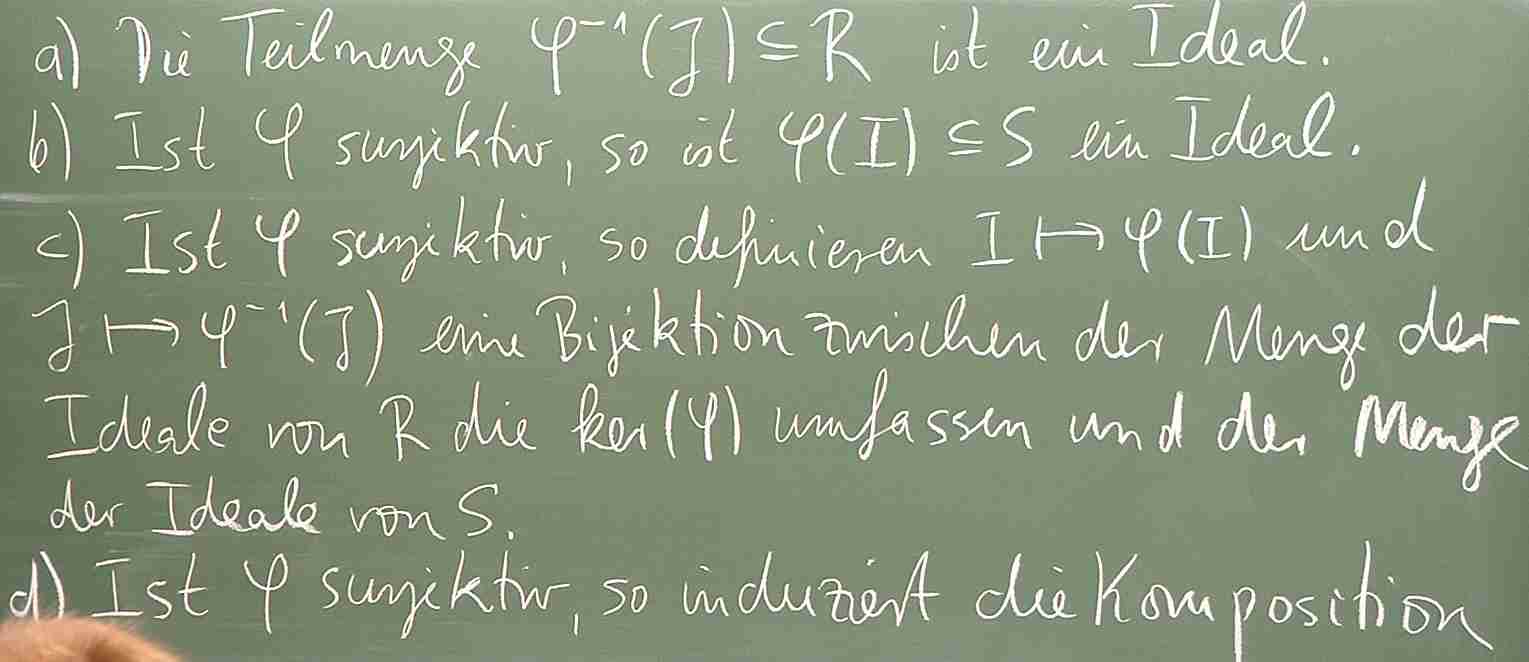 a) Die Teilmenge φ⁻¹(J) ⊆ R ist ein Ideal.
b) Ist φ surjektiv, so ist φ(I) ⊆ S ein Ideal.
c) Ist φ surjektiv, so definieren I ↦ φ(I) und
J ↦ φ⁻¹(J) eine Bijektion zwischen der Menge der
Ideale von R die ker(φ) umfassen und der Menge
der Ideale von S.
d) Ist φ surjektiv, so induziert die Komposition